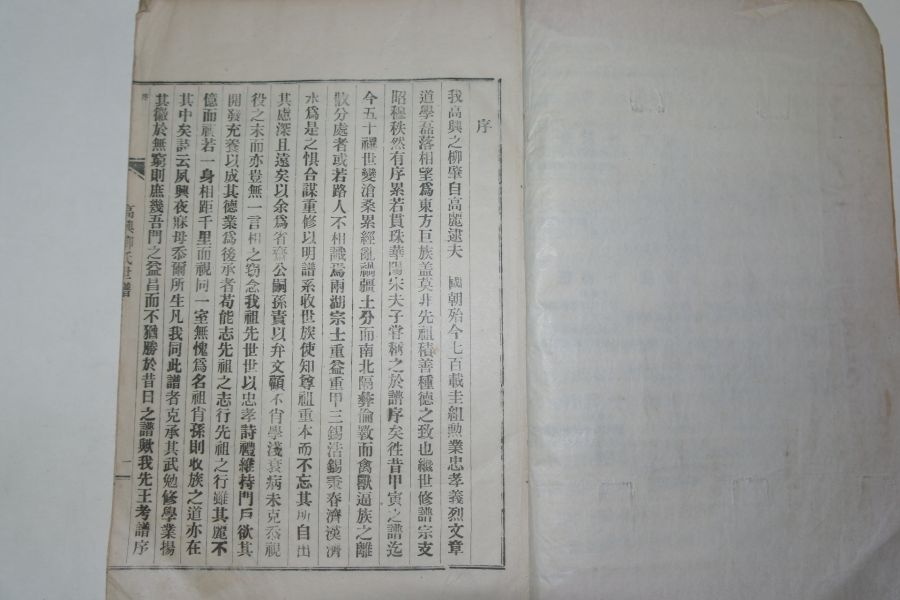 序
我高興之柳肇自高麗逮夫 國朝殆今七百載圭組勲業忠孝義烈文章
道學磊落相望爲東方巨族盖莫非先祖積善種德之致也繼世修譜宗支
昭穆秩然有序累若貫珠華陽宋夫子嘗稱之於譜序矣徃昔甲寅之譜迄
今五十禩世變滄桑累經亂禍疆土分而南北隔彛倫斁而禽獸逼族之離
散分處者或若路人不相識焉兩湖宗士重益重甲三錫浩錫秉春濟漢濟
爲是之惧合謀重修以明譜系收世族使知尊祖重本而不忘其所自出
其慮深且遠矣以余爲省齋公嗣孫責以弁文顧不肖學淺衰病未克忝視
役之末而亦豈無一言相之窃念我祖先世世以忠孝詩禮維持門戶欲其
開發充養以成其德業爲後承者苟能志先祖之志行先祖之行雖其麗不
億而視若一身相距千里而視同一室無愧爲名祖肖孫則收族之道亦在
其中矣詩云夙興夜寐毋忝爾所生凡我同此譜者克承其武勉修學業揚
其徽於無窮則庶幾吾門之益昌而不猶勝於昔日之譜歟我先王考譜序
序
高興柳氏世譜
一